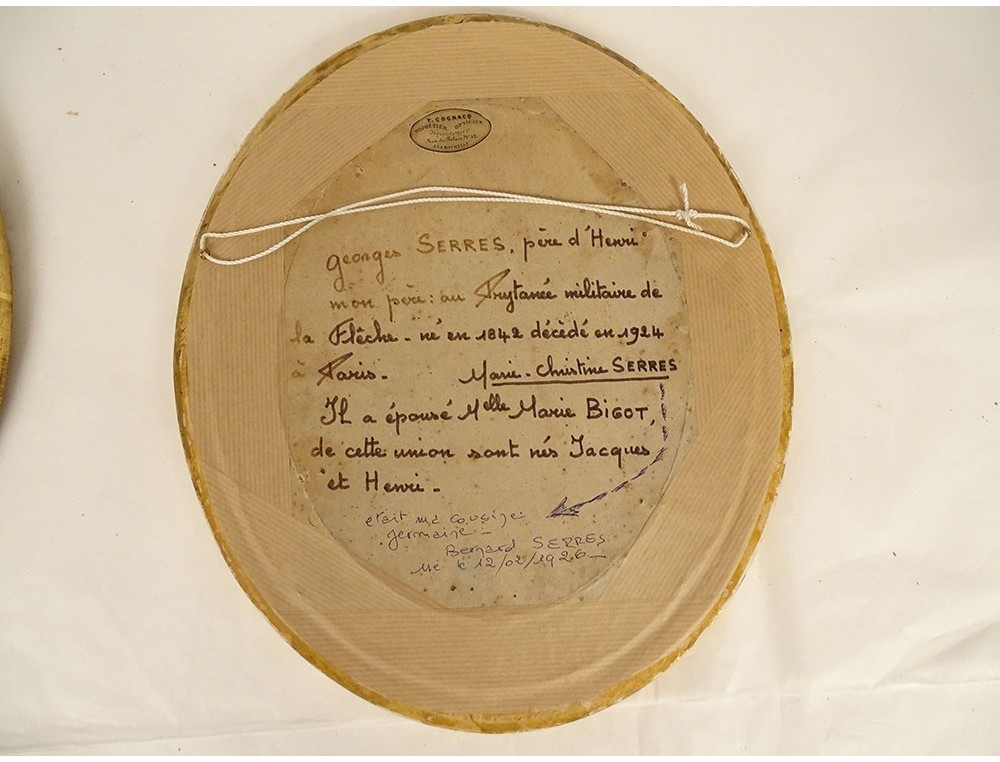 T. COGNACQ
BIJOUTIER OPTICIEN
A LA ROCHELLE
Georges SERRES, père d'Henri
mon père : au Prytanée militaire de
la Flêche - né en 1842 décédé en 1924
à Paris. Marie-Christine SERRES
Il a épousé Melle Marie BIGOT,
de cette union sont nés Jacques
et Henri -
etait ma cousine
germaine -
Bernard SERRES
né le 12/02/1926 -